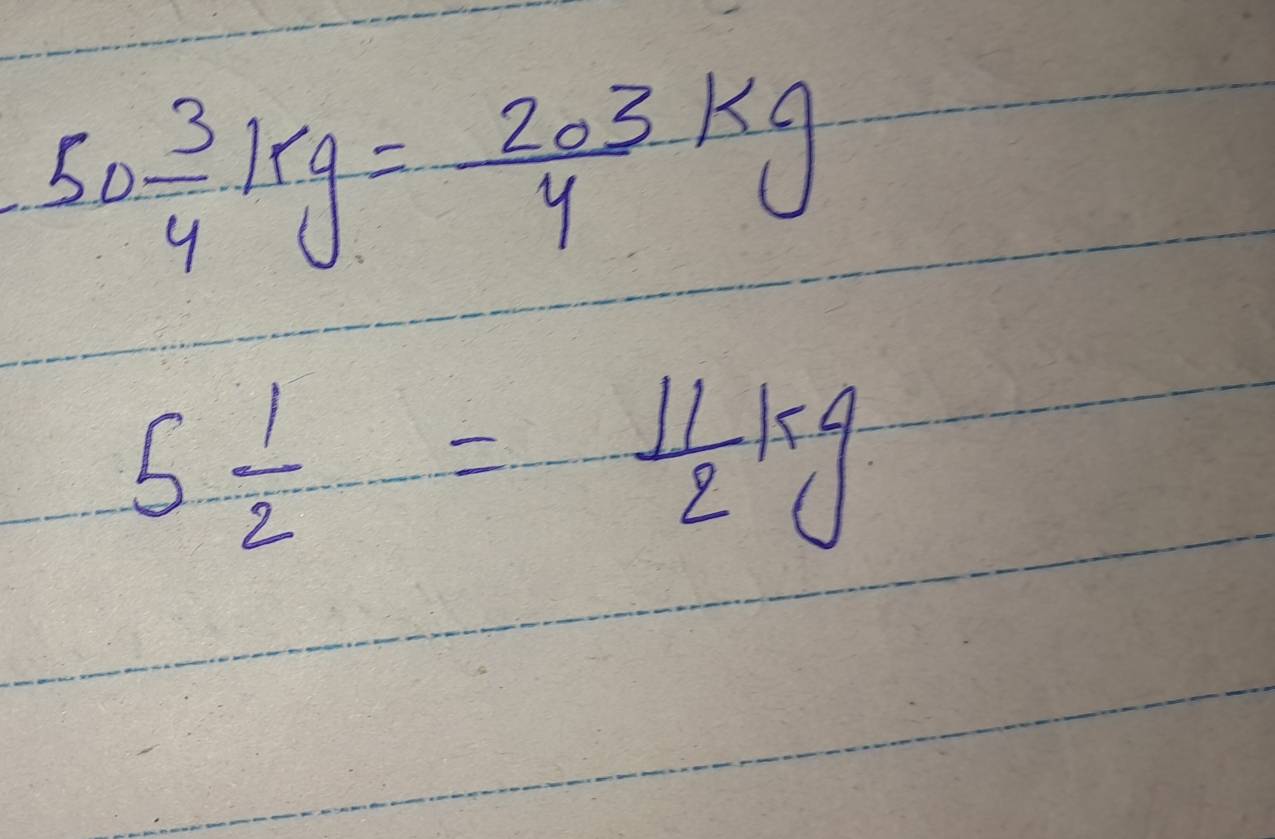 50 3/4 Kg = 203/4 Kg
5 1/2 = 11/2 kg